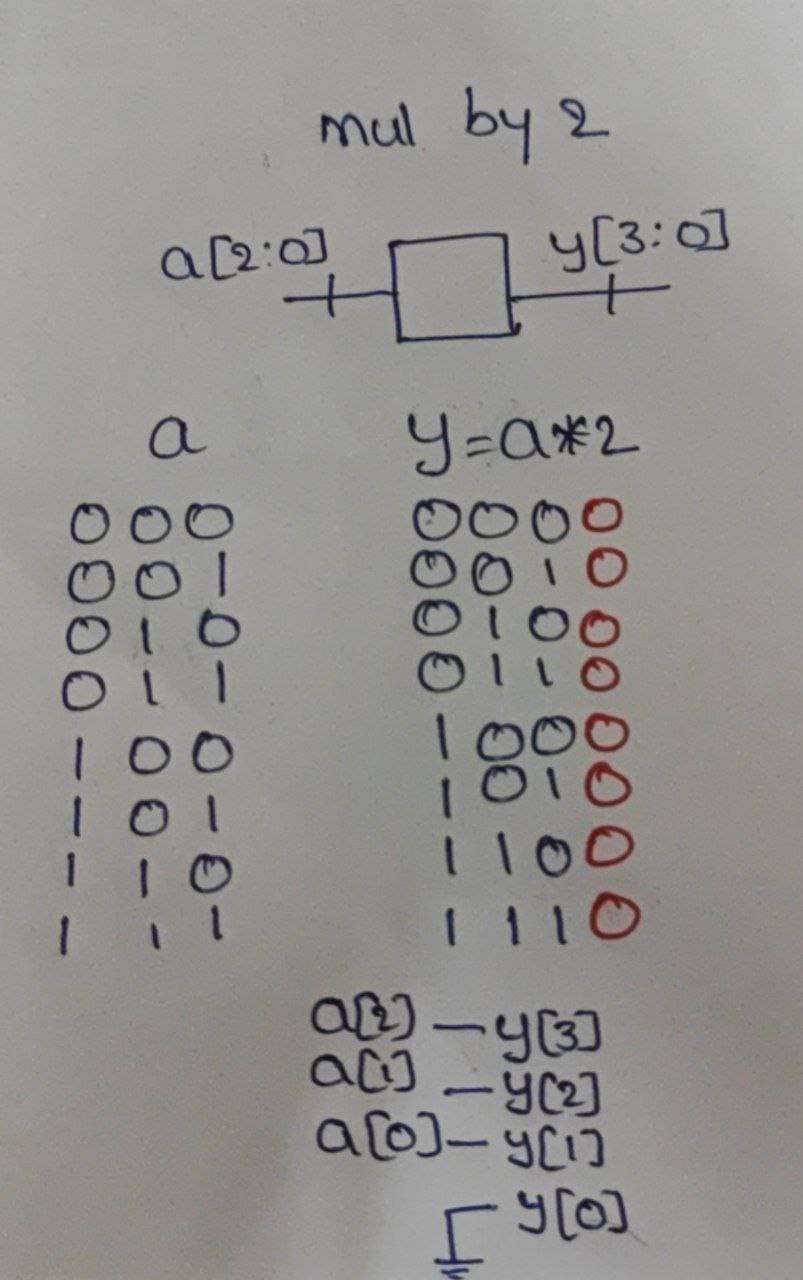 mul by 2
a[2:0] y[3:0]
a y=a*2
0 0 0 0 0 0 0
0 0 1 0 0 1 0
0 1 0 0 1 0 0
0 1 1 0 1 1 0
1 0 0 1 0 0 0
1 0 1 1 0 1 0
1 1 0 1 1 0 0
1 1 1 1 1 1 0
a[2] — y[3]
a[1] — y[2]
a[0] — y[1]
y[0]